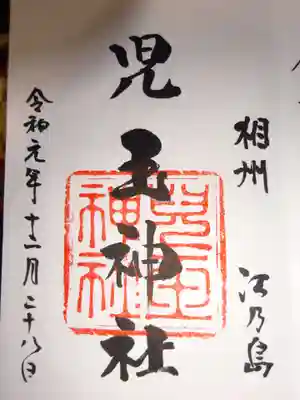 相州 江乃島
児玉神社
令和元年十二月二十八日
児玉神社